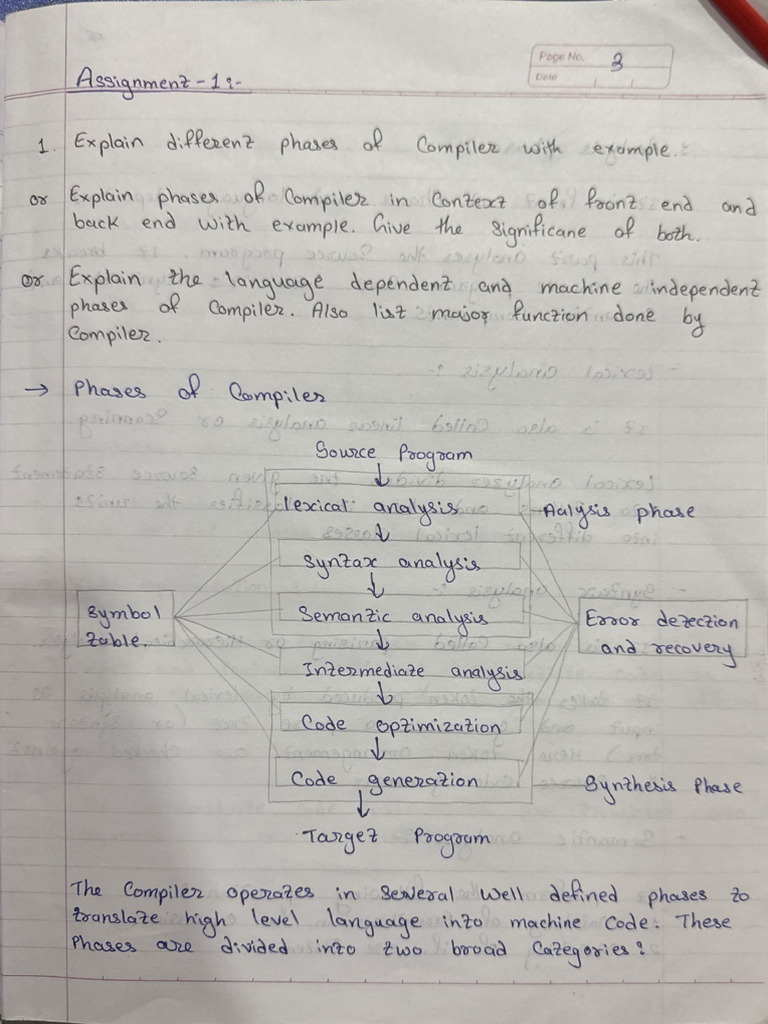 Page No. 3
Date
Assignment - 1 :-
1. Explain different phases of Compiler with example.
or Explain phases of Compiler in Context of front end and
back end with example. Give the significane of both.
or Explain the language dependent and machine independent
phases of Compiler. Also list major function done by
Compiler.
→ Phases of Compiler
Source Program
↓
Lexical analysis Aalysis phase
↓
Syntax analysis
↓
Symbol Semantic analysis Error detection
table. ↓ and recovery
Intermediate analysis
↓
Code optimization
↓
Code generation Synthesis Phase
↓
Target Program
The Compiler operates in several well defined phases to
translate high level language into machine code. These
Phases are divided into two broad Categories :